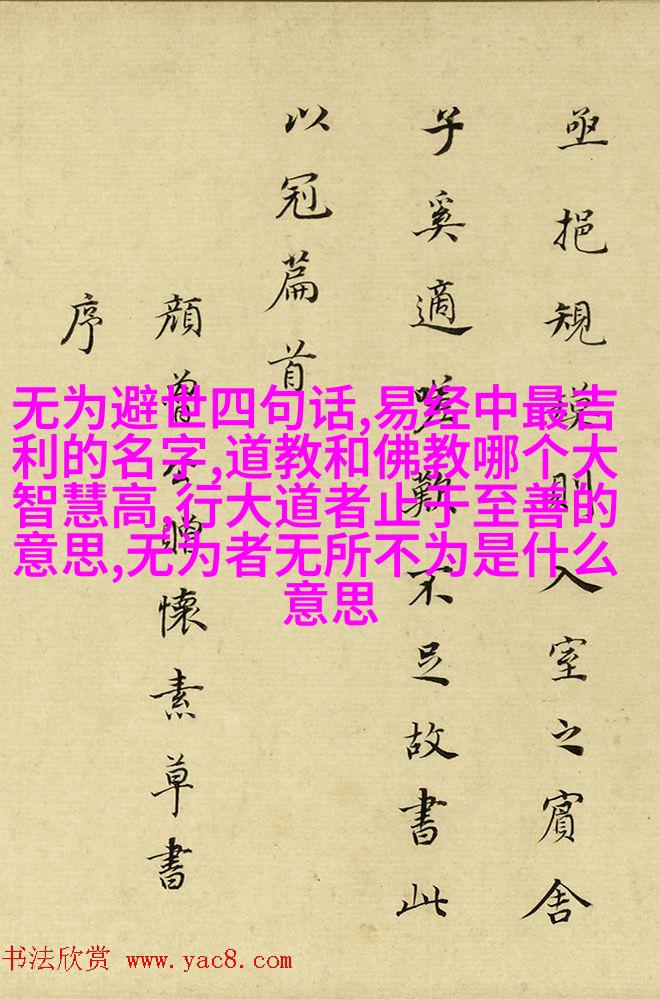 亟挹規謨則入室之賓舍
子奚適嗟歎不足故書此
以冠篇首
顏魯公贈懷素草書
序
无为避世四句话,易经中最吉
利的名字,道教和佛教哪个大
智慧高,行大道者止于至善的
意思,无为者无所不为是什么
意思
书法欣赏 www.yac8.com